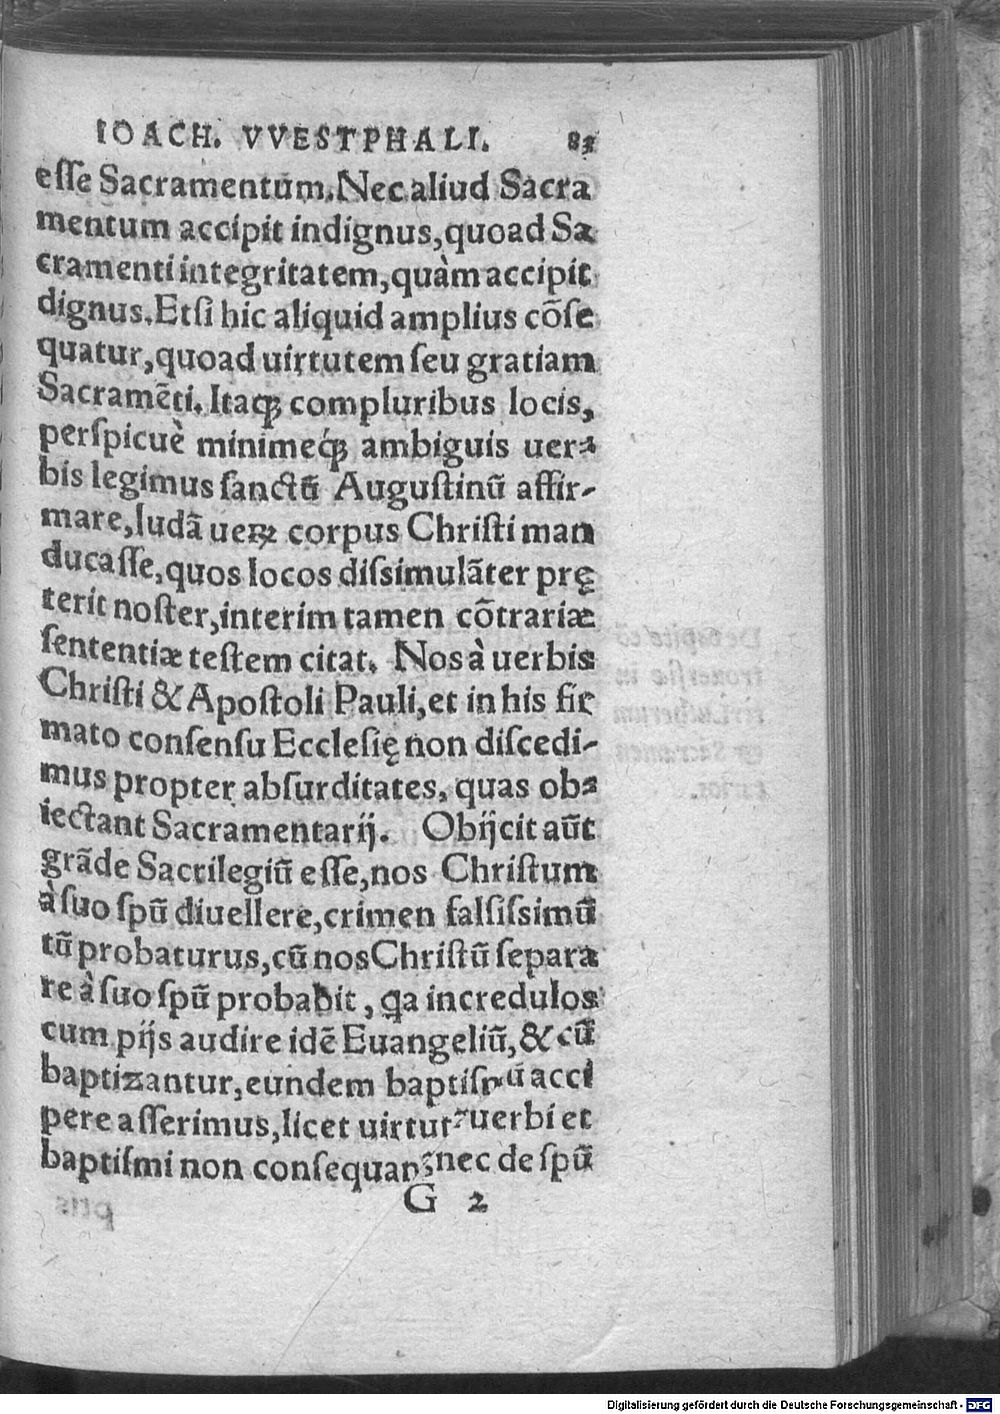 IOACH. VVESTPHALI. 83
esse Sacramentum. Nec aliud Sacra
mentum accipit indignus, quoad Sa
cramenti integritatem, quàm accipit
dignus. Etsi hic aliquid amplius cõse
quatur, quoad uirtutem seu gratiam
Sacramẽti. Itaqꝫ compluribus locis,
perspicuè minimeq́ꝫ ambiguis uer-
bis legimus sanctũ Augustinũ affir-
mare, Iudã ueꝝ corpus Christi man
ducasse, quos locos dissimulãter prę
terit noster, interim tamen cõtrariæ
sententiæ testem citat. Nos à uerbis
Christi & Apostoli Pauli, et in his fir
mato consensu Ecclesię non discedi-
mus propter absurditates, quas ob-
iectant Sacramentarij. Obijcit aũt
grãde Sacrilegiũ esse, nos Christum
à suo spũ diuellere, crimen falsissimũ
tũ probaturus, cũ nos Christũ separa
re à suo spũ probabit, ꝗa incredulos
cum pijs audire idẽ Euangeliũ, & cũ
baptizantur, eundem baptismũ acci
pere asserimus, licet uirtutẽ uerbi et
baptismi non consequant᷑ nec de spũ
G 2